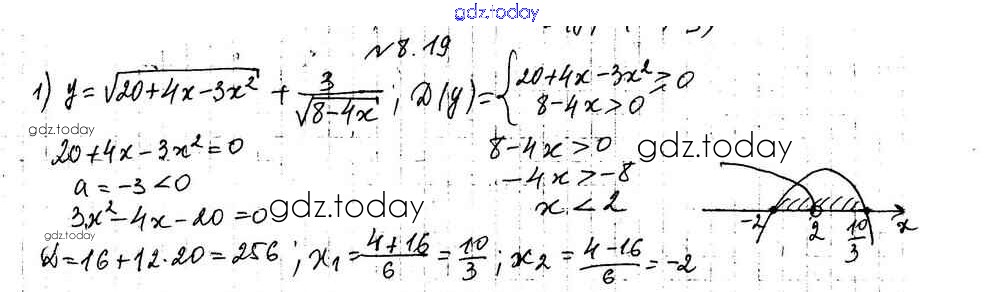 gdz.today
№ 8.19
1) y = √(20+4x-3x²) + 3/√(8-4x) ; D(y) = { 20+4x-3x² ≥ 0
8-4x > 0
gdz.today
20+4x-3x² = 0
8-4x > 0
gdz.today
a = -3 < 0
-4x > -8
3x²-4x-20 = 0
gdz.today
x < 2
-2
2
10/3
x
gdz.today
D = 16+12·20 = 256 ; x₁ = (4+16)/6 = 10/3 ; x₂ = (4-16)/6 = -2